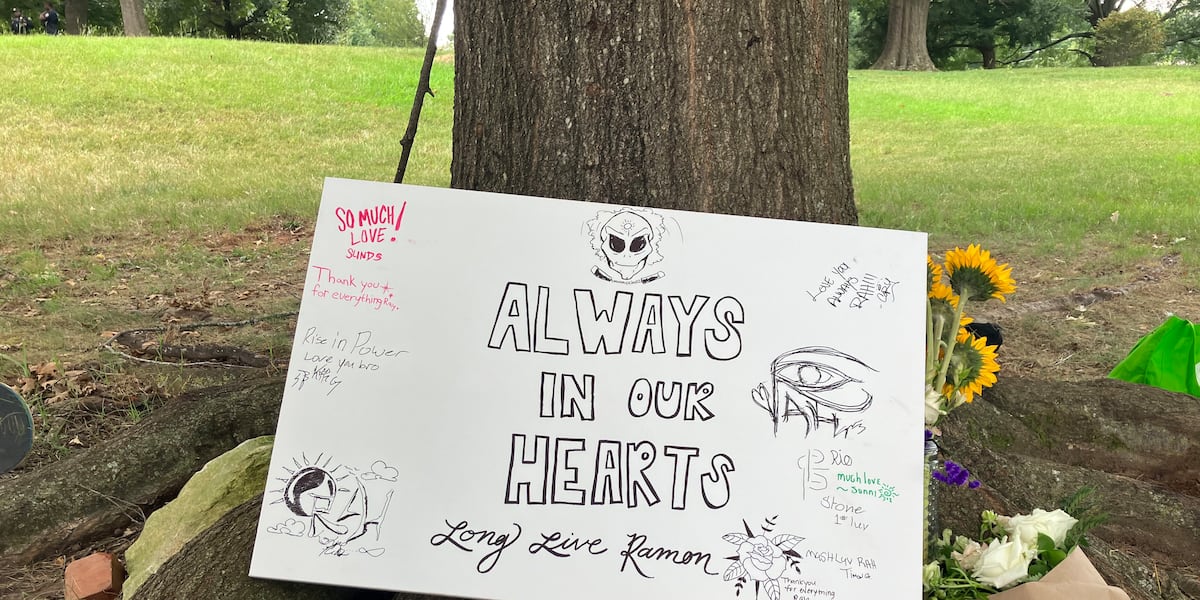 SO MUCH
LOVE!
SUNDS
Thank you
for everything Ray.
Rise in Power
Love you bro
ALWAYS
IN OUR
HEARTS
Long Live Ramon
LOVE YOU
ALWAYS
RAH!!
RAH
Rio
much love
~ Sunni
Stone
1st luv
MUSH LUV RAH
Thankyou
for everything
RAH